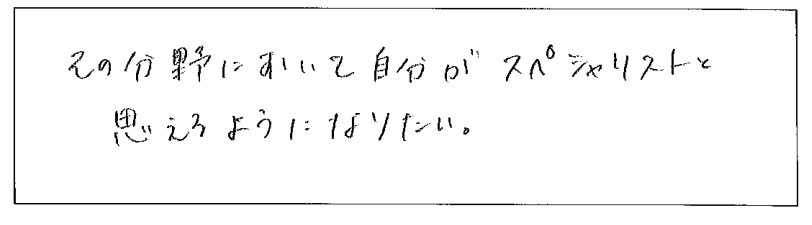 その分野において自分がスペシャリストと
思えるようになりたい。